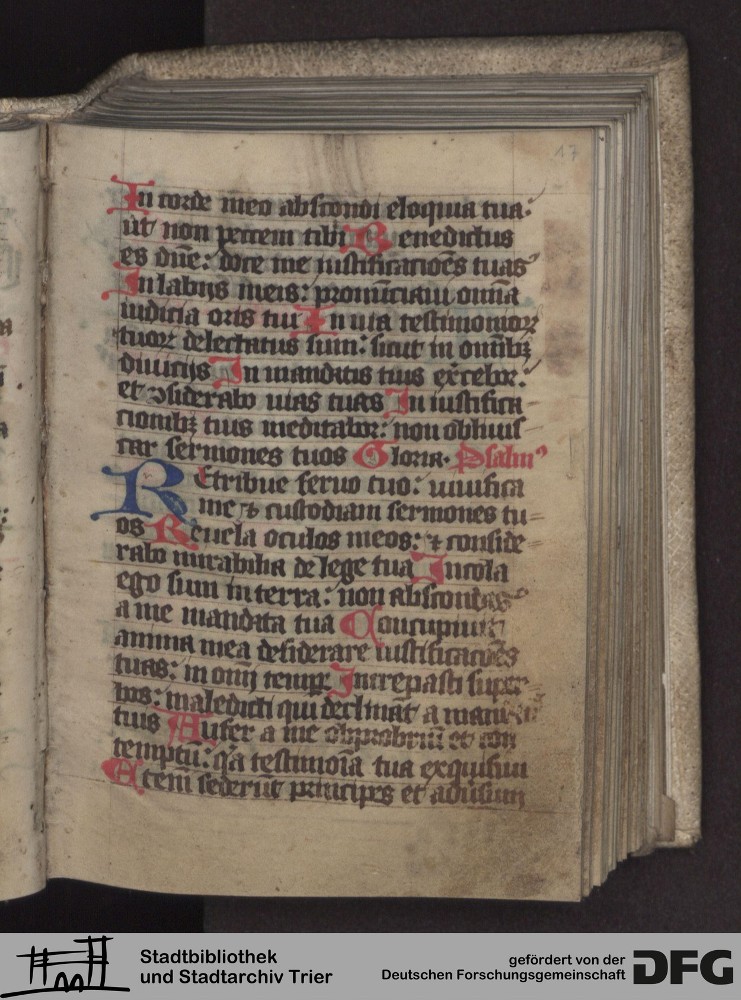 17
In corde meo abscondi eloquia tua:
ut non peccem tibi Benedictus
es dñe: doce me iustificacioēs tuas
In labijs meis: pronūciaui om̄ia
iudicia oris tui In uia testimonioꝝ
tuoꝝ delectatus sum: sicut in om̄ibꝫ
diuicijs In mandatis tuis ex̄cebor:
et ꝯsiderabo uias tuas In iustifica
cionibꝫ tuis meditabor: non obliuis
car sermones tuos Gloria. Psalmꝰ
REtribue seruo tuo: uiuifica
me ⁊ custodiam sermones tu
os Reuela oculos meos: ⁊ conside
rabo mirabilia de lege tua Incola
ego sum in terra: non abscondas
a me mandata tua Concupiuit
anima mea desiderare iustificacōēs
tuas: in omī tempe Increpasti super
bos: maledicti qui declinat a manda
tuis Aufer a me obprobriū et con
temptū: qꝛa testimoīa tua exquisiui
Etem̄ sederūt principes et adūsum
Stadtbibliothek
und Stadtarchiv Trier
gefördert von der
Deutschen Forschungsgemeinschaft
DFG